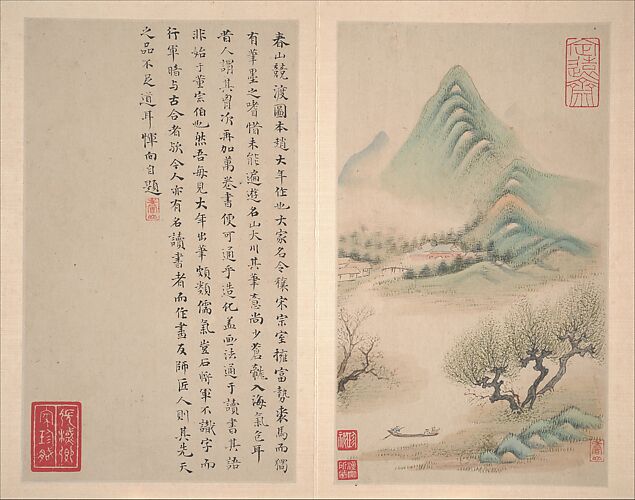 春山競渡圖本趙大年作也大家名令穰宋宗室擁富勢裘馬而獨
有筆墨之嗜惜未能遍遊名山大川其筆意尚少蒼龍入海氣色耳
昔人謂其胷次再加萬卷書便可通乎造化蓋画法通于讀書其語
非始于董宗伯也然吾每見大年出筆頗類儒氣豈石將軍不識字而
行軍暗与古合者欤今人亦有名讀書者而作畫反師匠人則其先天
之品不足道耳惲向自題